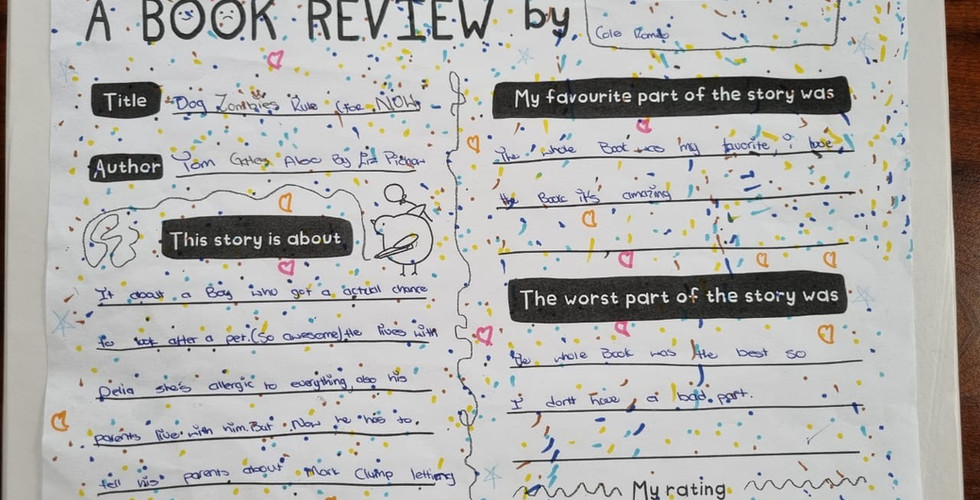 A BOOK REVIEW by
Cole
Title
Dog Zombies Rule (For NOW)
Author
Tom Gates Also By Liz Pichon
This story is about
It about a Boy who got a actual chance
to look after a pet.(So awesome)He lives with
Delia she's allergic to everything, also his
parents live with him.But Now he has to
tell his parents about Mark Clump letting
My favourite part of the story was
The whole Book was my favorite, i love
the Book it's amazing
The worst part of the story was
The whole Book was the best so
I dont have a bad part.
My rating